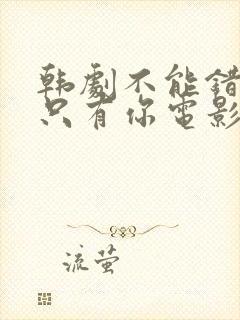 韩剧不能错
只有你电影
流萤